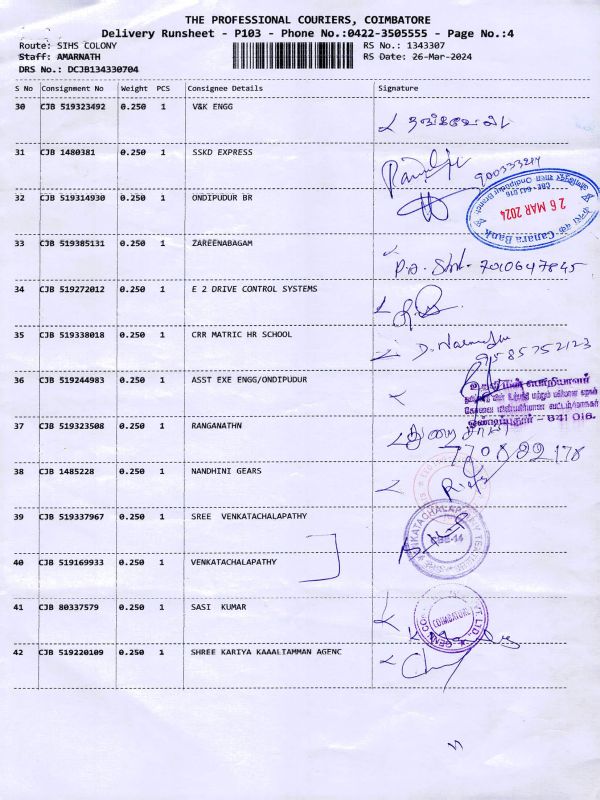 THE PROFESSIONAL COURIERS, COIMBATORE
Delivery Runsheet - P103 - Phone No.:0422-3505555 - Page No.:4
Route: SIHS COLONY RS No.: 1343307
Staff: AMARNATH RS Date: 26-Mar-2024
DRS No.: DCJB134330704
S No Consignment No Weight PCS Consignee Details Signature
30 CJB 519323492 0.250 1 V&K ENGG
31 CJB 1480381 0.250 1 SSKD EXPRESS
32 CJB 519314930 0.250 1 ONDIPUDUR BR
26 MAR 2024
Canara Bank
33 CJB 519385131 0.250 1 ZAREENABAGAM
7010647845
34 CJB 519272012 0.250 1 E 2 DRIVE CONTROL SYSTEMS
35 CJB 519338018 0.250 1 CRR MATRIC HR SCHOOL
9585752123
36 CJB 519244983 0.250 1 ASST EXE ENGG/ONDIPUDUR
உதவி மின் பொறியாளர்
ஒண்டிபுதூர் - 641 016.
37 CJB 519323508 0.250 1 RANGANATHN
38 CJB 1485228 0.250 1 NANDHINI GEARS
39 CJB 519337967 0.250 1 SREE VENKATACHALAPATHY
40 CJB 519169933 0.250 1 VENKATACHALAPATHY
41 CJB 80337579 0.250 1 SASI KUMAR
COIMBATORE
42 CJB 519220109 0.250 1 SHREE KARIYA KAAALIAMMAN AGENC